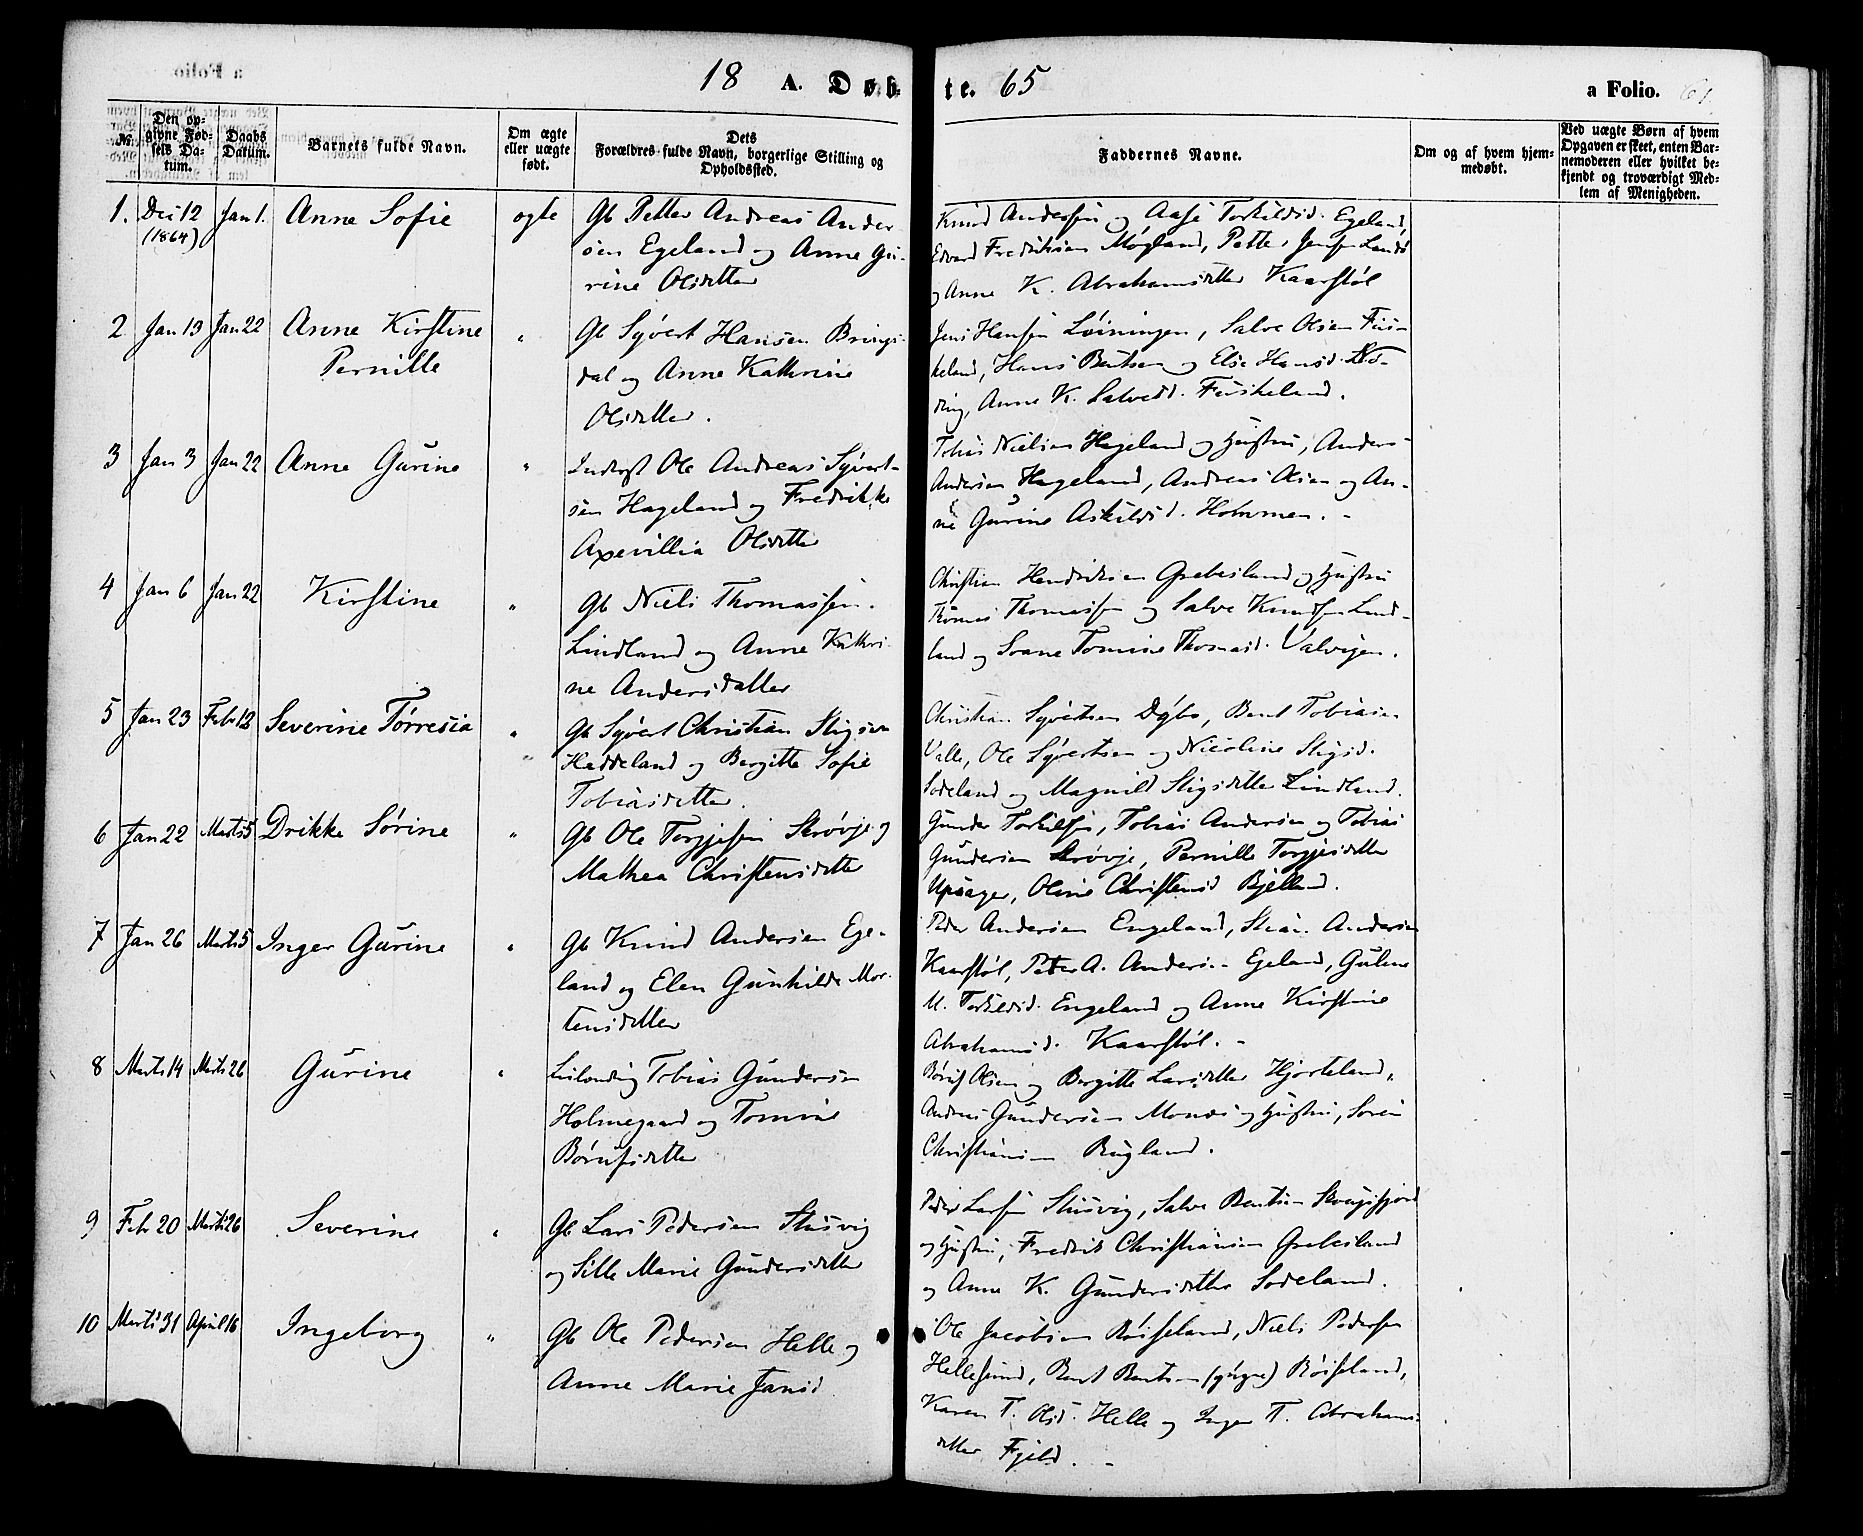 18 A. Døb- te. 65 a Folio. 61.
No.
Den op-
givne Fød-
sels Da-
tum.
Daabs
Datum.
Barnets fulde Navn.
Om ægte
eller uægte
født.
Dets
Forældres fulde Navn, borgerlige Stilling og
Opholdssted.
Faddernes Navne.
Om og af hvem hjem-
medøbt.
Ved uægte Børn af hvem
Opgaven er skeet, enten Bar-
nemoderen eller hvilket be-
kjendt og troværdigt Med-
lem af Menigheden.
1. Dec 12 (1864) Jan 1. Anne Sofie ægte
Gb Petter Andreas Ander-
sen Egeland og Anne Gu-
rine Olsdatter
Knud Andersen og Aase Torkildsd. Egeland,
Edvard Fredriksen Møgland, Petter Jensen Landø
og Anne K. Abrahamsdatter Kaarstøl
2 Jan 13 Jan 22 Anne Kirstine
Pernille "
Gb Syvert Hansen Brings-
dal og Anne Kathrine
Olsdatter.
Jens Hansen Løiningen, Salve Olsen Fus-
keland, Hans Bentsen og Else Hansd.
ding, Anne K. Salvesd. Fuskeland.
3 Jan 3 Jan 22 Anne Gurine "
Inderst Ole Andreas Syvert-
sen Hageland og Fredrikke
Axevillia Olsdatter
Tobias Nielsen Hageland og Hustru, Anders
Andersen Hageland, Andreas Olsen og An-
ne Gurine Askildsd. Holmen. -
4 Jan 6 Jan 22 Kirstine "
Gb Niels Thomassen
Lindland og Anne Kathri-
ne Andersdatter
Christian Hendriksen Grebesland og Hustru
Tomas Thomassen og Salve Knudsen Lind-
land og Tomine Thomasd. Valvigen.
5 Jan 23 Febr 12 Severine Tørresia "
Gb Syvert Christian Stigsen
Heddeland og Bergitte Sofie
Tobiasdatter.
Christian Syvertsen Dybo, Bent Tobiasen
Valle, Ole Syvertsen og Nicoline Stigsd.
Sodeland og Magnild Stigsdatter Lindland.
6 Jan 22 Marts 5 Drikke Sørine "
Gb Ole Torgjesen Skrøvje og
Mathea Christensdatter
Gunder Torkilsen, Tobias Andersen og Tobias
Gundersen Skrøvje, Pernille Torgjesdatter
Upsager, Oline Christensd Bjelland.
7 Jan 26 Marts 5 Inger Gurine "
Gb Knud Andersen Ege-
land og Elen Gunhilde Mor-
tensdatter
Peder Andersen Engeland, Andersen
Kaarstøl, Peter A. Andersen Egeland,
M. Torkildsd. Engeland og Anne Kirstine
Abrahamsd. Kaarstøl. -
8 Marts 14 Marts 26 Gurine "
Leilending Tobias Gundersen
Holmegaard og Tomine
Børufsdatter
Børuf Olsen og Bergitte Larsdatter Hjorteland,
Andreas Gundersen Monæs og Hustru, Søren
Christiansen Rugland.
9 Febr 20 Marts 26 Severine "
Gb Lars Pedersen Stusvig
og Sille Marie Gundersdatter
Peder Larsen Stusvig, Salve Bentsen Skougsfjord
og Hustru, Fredrik Christiansen Grebesland
og Anne K. Gundersdatter Sodeland.
10 Marts 31 April 16 Ingeborg "
Gb Ole Pedersen Helle og
Anne Marie Jansd
Ole Jacobsen Røiseland, Niels Pedersen
Hellesund, Bent Bentsen (yngre) Røiseland,
Karen T. Olsd. Helle og Inger T. Abrahams-
datter Fjeld. -